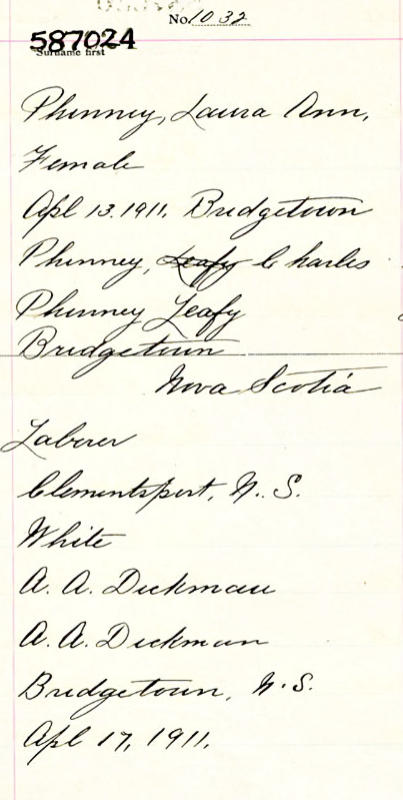 No. 1032
587024
Surname first
Phinney, Laura Ann,
Female
Apl 13. 1911. Bridgetown
Phinney, Leafy Charles
Phinney Leafy
Bridgetown
Nova Scotia
Laborer
Clementsport, N. S.
White
A. A. Deckman
A. A. Deckman
Bridgetown, N. S.
Apl 17, 1911.